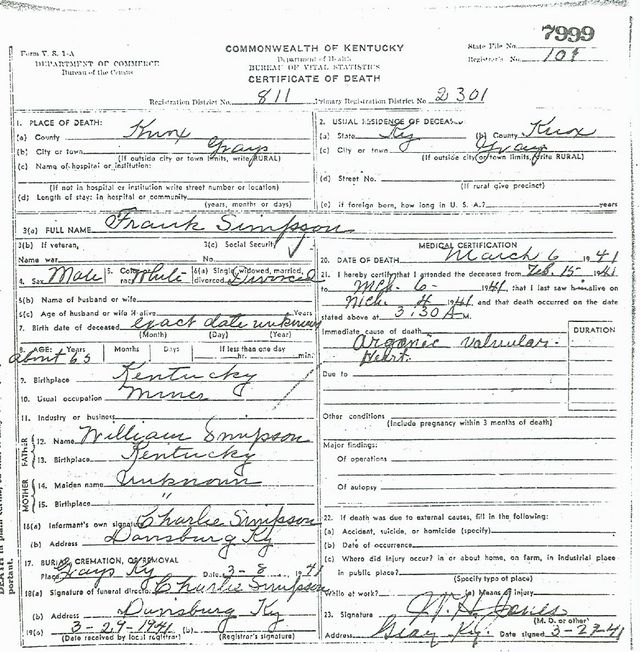 7999
Form V. S. 1-A
DEPARTMENT OF COMMERCE
Bureau of the Census
COMMONWEALTH OF KENTUCKY
Department of Health
BUREAU OF VITAL STATISTICS
CERTIFICATE OF DEATH
State File No.
Registrar's No. 108
Registration District No. 811 Primary Registration District No. 2301
1. PLACE OF DEATH:
(a) County Knox
(b) City or town Grays
(If outside city or town limits, write RURAL)
(c) Name of hospital or institution:
(If not in hospital or institution write street number or location)
(d) Length of stay: in hospital or community
(years, months or days)
2. USUAL RESIDENCE OF DECEASED
(a) State Ky (b) County Knox
(c) City or town Gray
(If outside city or town limits, write RURAL)
(d) Street No.
(If rural give precinct)
(e) if foreign born, how long in U. S. A.? years
3(a) FULL NAME Frank Simpson
3(b) If veteran,
Name war No.
3(c) Social Security
4. Sex Male 5. Color or race White 6(a) Single, widowed, married, divorced Divorced
6(b) Name of husband or wife
6(c) Age of husband or wife if alive Years
7. Birth date of deceased exact date unknown
(Month) (Day) (Year)
8. AGE: Years Months Days If less than one day
about 65 hr. min.
9. Birthplace Kentucky
10. Usual occupation Miner
11. Industry or business
FATHER
12. Name William Simpson
13. Birthplace Kentucky
MOTHER
14. Maiden name Unknown
15. Birthplace "
16(a) Informant's own signature Charlie Simpson
(b) Address Ky
17. BURIAL, CREMATION, OR REMOVAL
Place Grays Ky Date 3-8 1941
18(a) Signature of funeral director Charlie Simpson
(b) Address Ky
19(a) 3-29-1941 (b)
(Date received by local registrar) (Registrar's signature)
MEDICAL CERTIFICATION
20. DATE OF DEATH March 6 1941
21. I hereby certify that I attended the deceased from Feb. 15 1941
to Mch - 6 - 1941, that I last saw him alive on
Mch. 4 1941 and that death occurred on the date
stated above at 3:30 A M.
Immediate cause of death DURATION
Organic valvular
Heart.
Due to
Other conditions
(Include pregnancy within 3 months of death)
Major findings:
Of operations
Of autopsy
22. If death was due to external causes, fill in the following:
(a) Accident, suicide, or homicide (specify)
(b) Date of occurrence
(c) Where did injury occur? in or about home, on farm, in industrial place
in public place?
(Specify type of place)
While at work? (e) Means of injury
23. Signature
(M. D. or other)
Address Gray Ky. Date signed 3-27-41